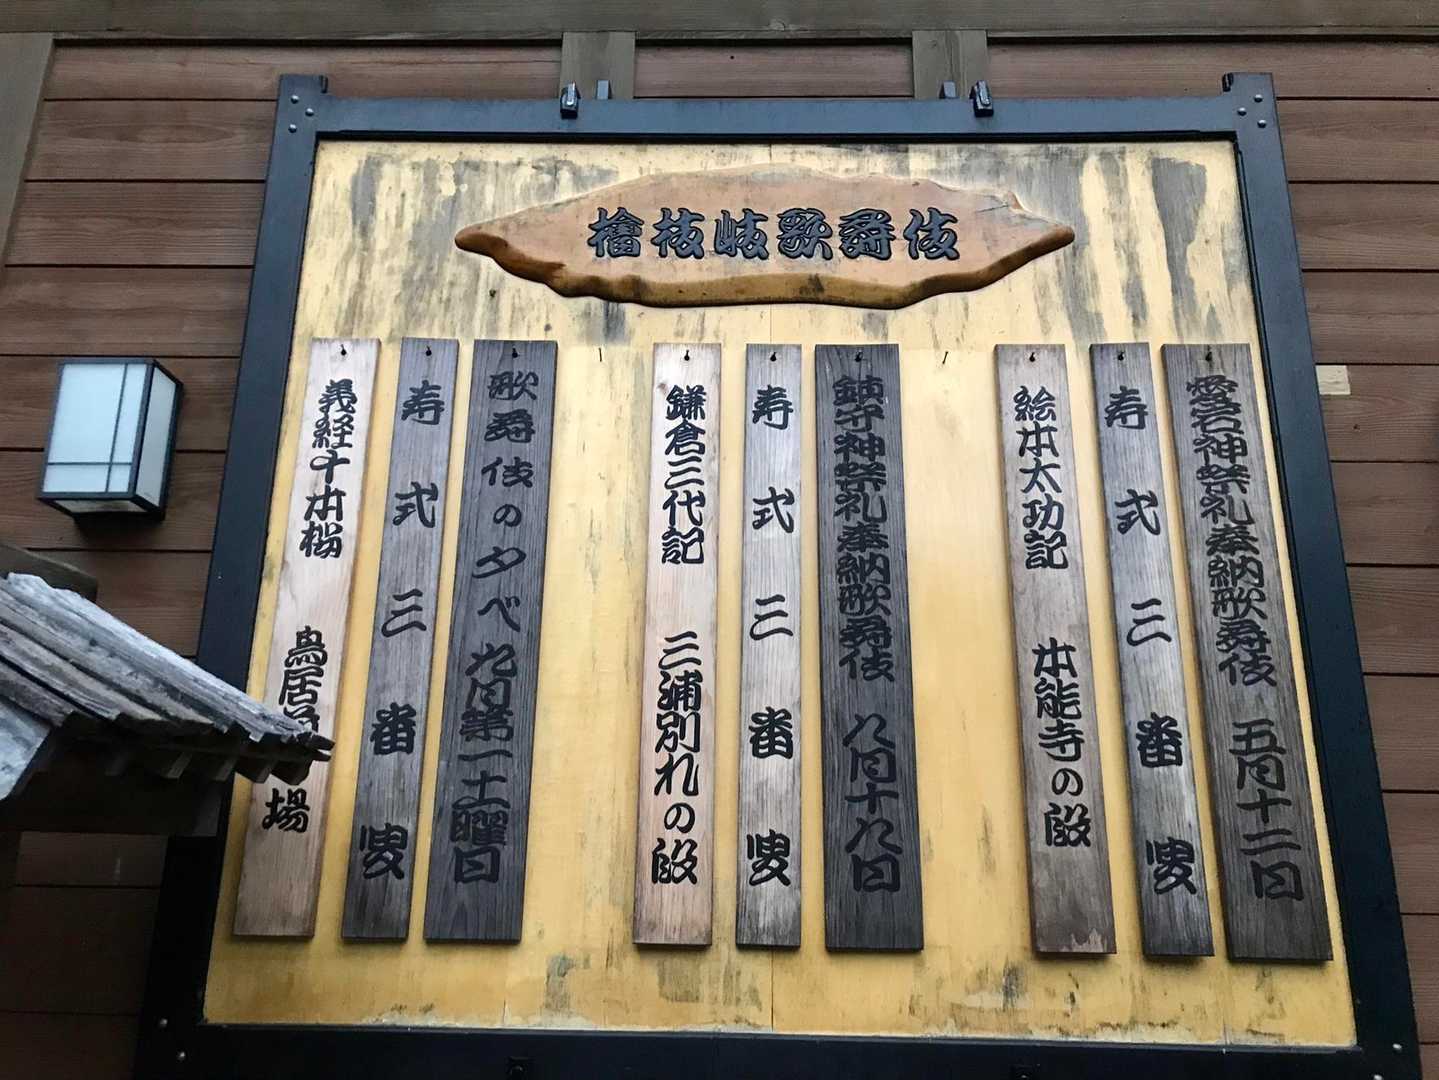 檜枝岐歌舞伎
愛宕神祭礼奉納歌舞伎 五月十二日
寿式三番叟
絵本太功記 本能寺の段
鎮守神祭礼奉納歌舞伎 八月十八日
寿式三番叟
鎌倉三代記 三浦別れの段
歌舞伎の夕べ 九月第一土曜日
寿式三番叟
義経千本桜 鳥居前 場